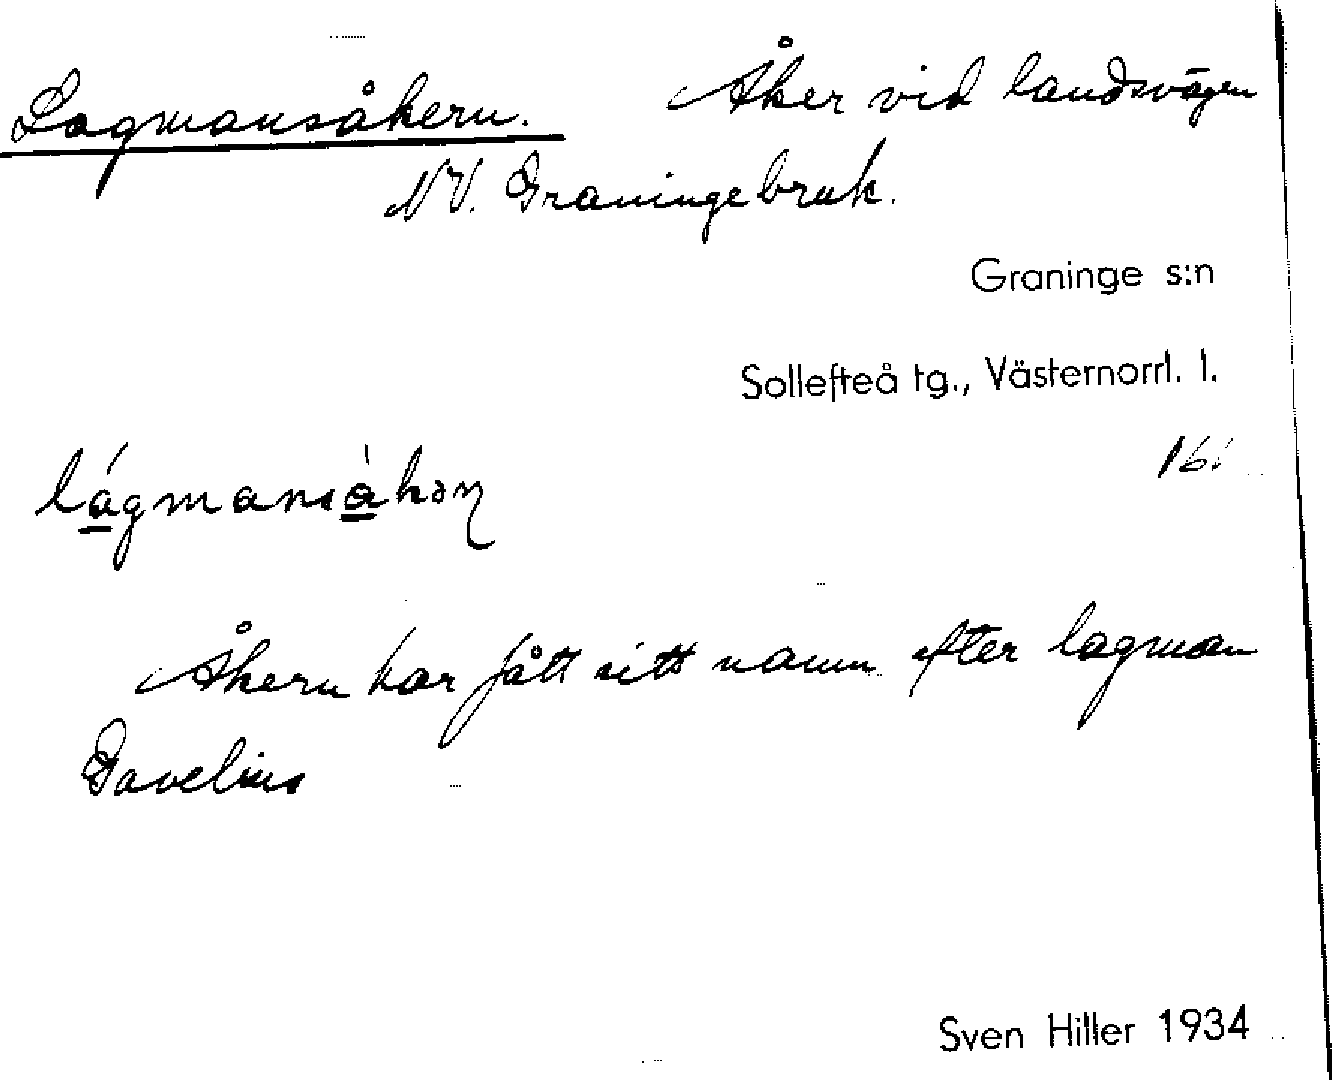 Lagmansåkern. Åker vid landsvägen
NV. Graningebruk.
Graninge s:n
Sollefteå tg., Västernorrl. l.
16.
Åkern har fått sitt namn efter lagman
Gavelius
Sven Hiller 1934